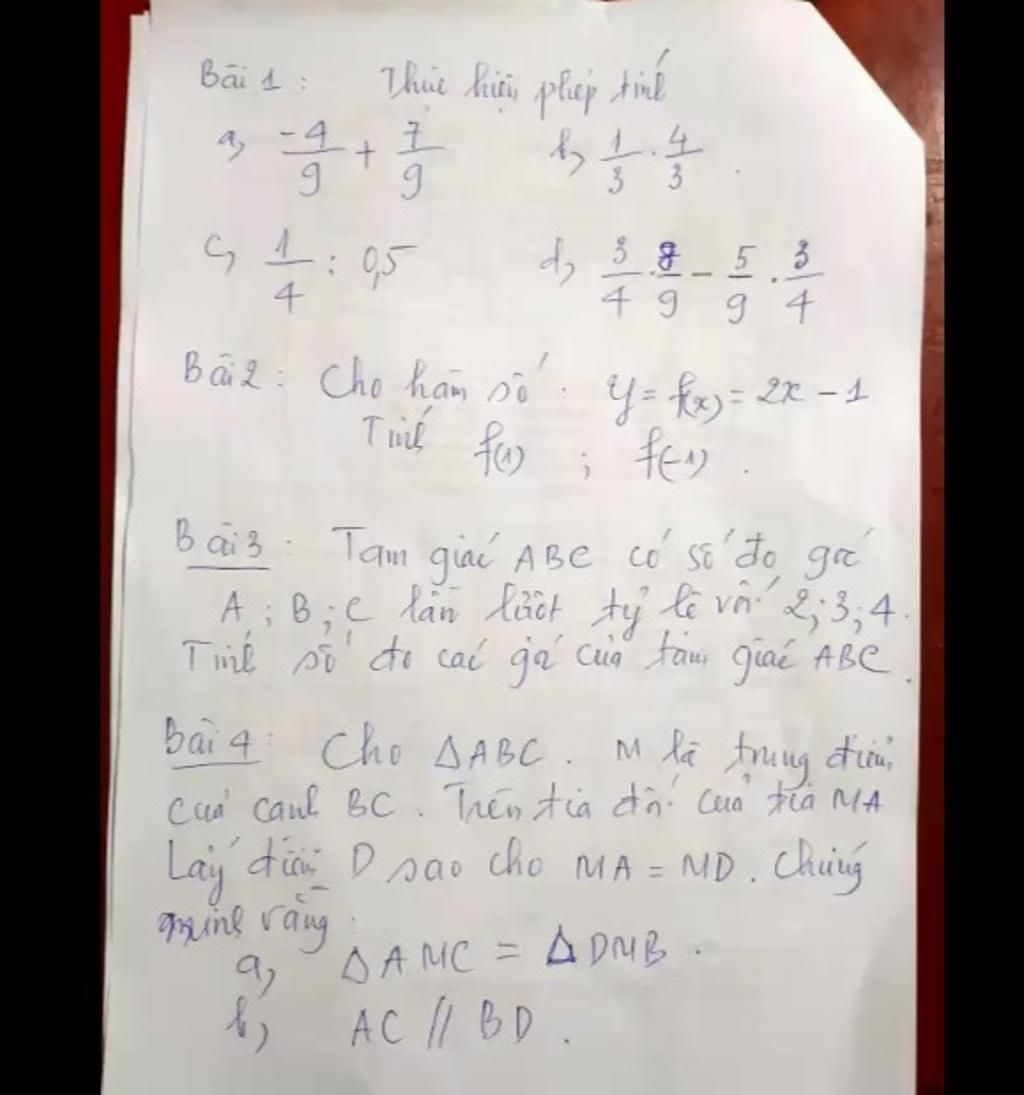 Bài 1 : Thực hiện phép tính
a, \frac{-4}{9} + \frac{7}{9} b, \frac{1}{3} . \frac{4}{3} .
c, \frac{1}{4} : 0,5 d, \frac{3}{4} . \frac{8}{9} - \frac{5}{9} . \frac{3}{4}
Bài 2 : Cho hàm số : y = f(x) = 2x - 1
Tính f(1) ; f(-1) .
Bài 3 : Tam giác ABC có số đo góc
A ; B ; C lần lượt tỷ lệ với 2 ; 3 ; 4 .
Tính số đo các góc của tam giác ABC .
Bài 4 : Cho ΔABC . M là trung điểm
của cạnh BC . Trên tia đối của tia MA
Lấy điểm D sao cho MA = MD . Chứng
minh rằng :
a, ΔAMC = ΔDMB .
b, AC // BD .